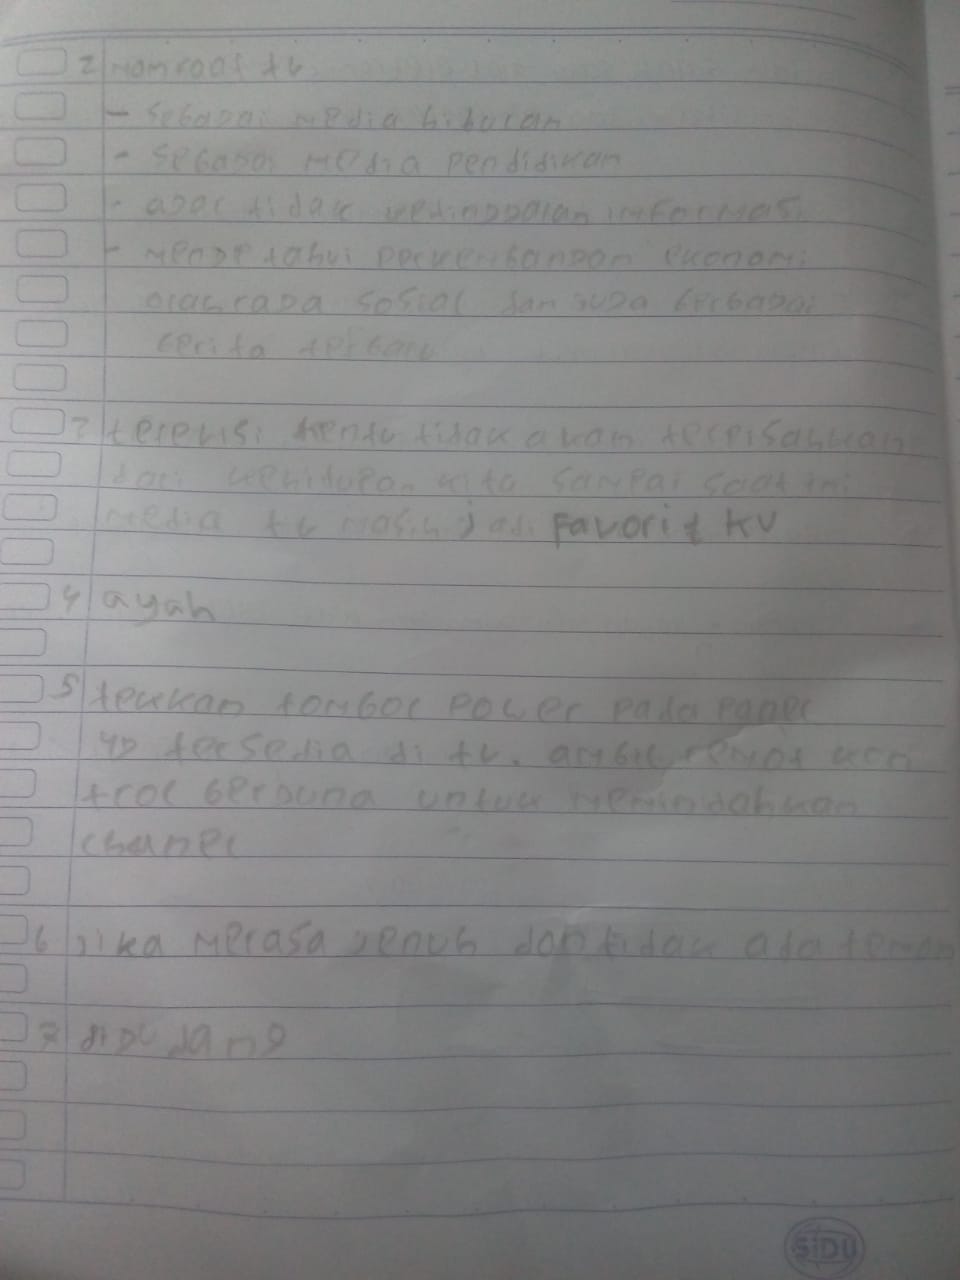 2 manfaat tv
- sebagai media hiburan
- sebagai media pendidikan
- agar tidak ketinggalan informasi
- mengetahui perkembangan ekonomi
olahraga sosial dan juga berbagai
berita terbaru
? televisi tentu tidak akan terpisahkan
dari kehidupan kita sampai saat ini
media tv masih jadi favorit kU
4 ayah
5 tekkan tombol power pada panel
yg tersedia di tv. ambil remot kon
trol berguna untuk memindahkan
chanel
6 jika merasa jenuh dan tidak ada teman
7
SiDU